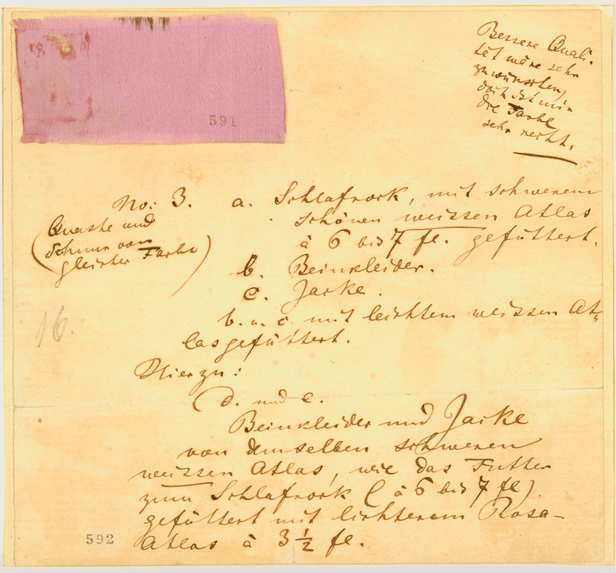 591
Bessere Quali-
tät wäre sehr
zu wünschen,
doch ist mir
die Farbe
sehr recht.
No: 3. a. Schlafrock, mit schwerem
schönen weissen Atlas
à 6 bis 7 fl. gefüttert.
(Quaste und
Schnur von
gleicher Farbe)
b. Beinkleider.
c. Jacke.
b. u. c. mit leichtem weissen At-
las gefüttert.
16.
Hierzu:
d. und e.
Beinkleider und Jacke
von demselben schweren
weissen Atlas, wie das Futter
zum Schlafrock (à 6 bis 7 fl)
gefüttert mit lichterem Rosa-
Atlas à 3 ½ fl.
592